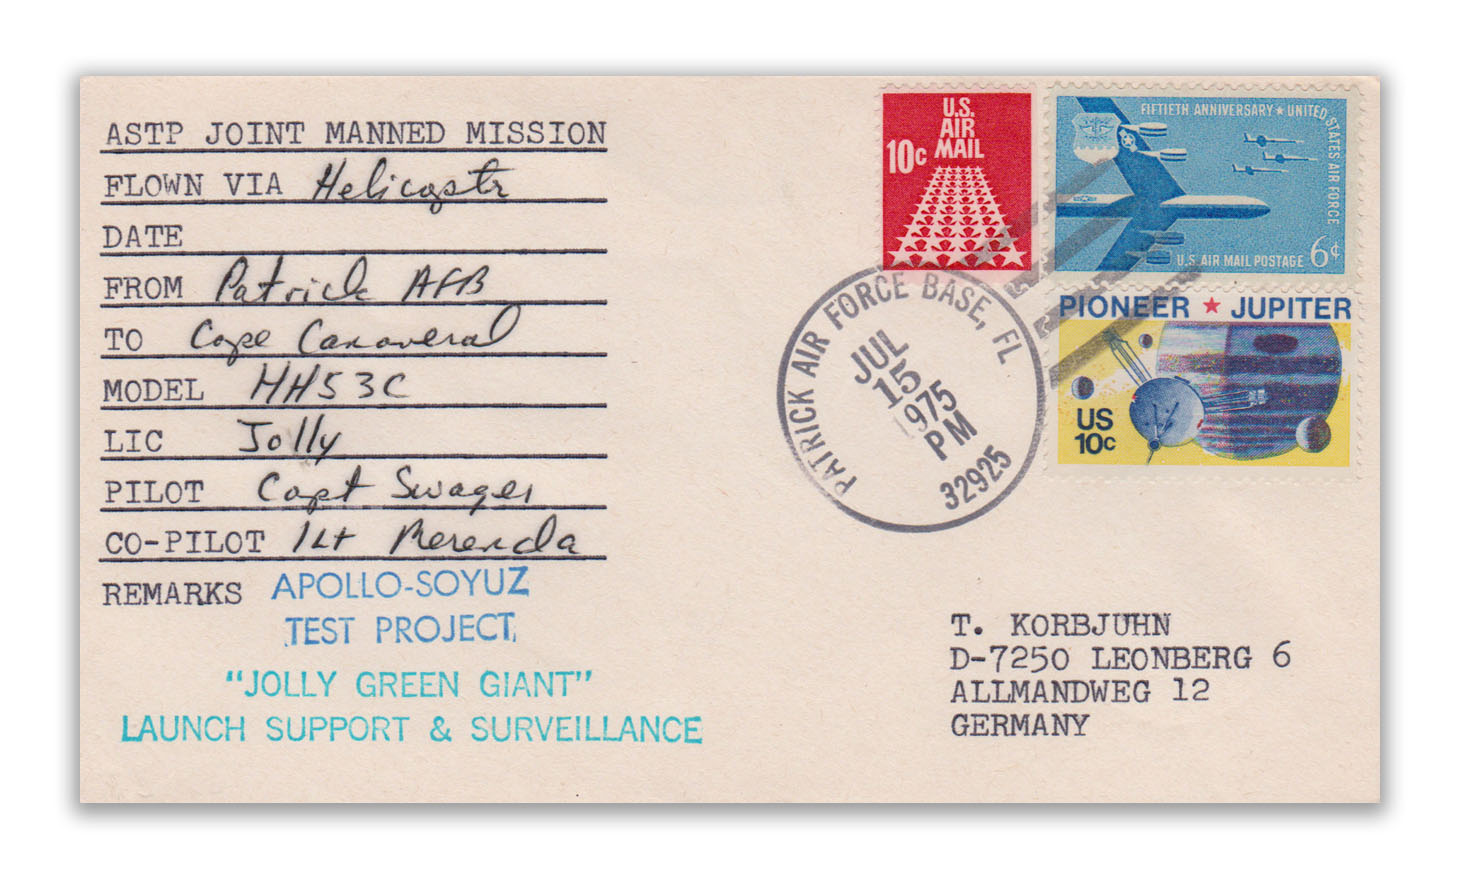 ASTP JOINT MANNED MISSION
FLOWN VIA Helicoptr
DATE
FROM Patrick AFB
TO Cape Canaveral
MODEL HH53C
LIC Jolly
PILOT Capt Swager
CO-PILOT 1Lt Merenda
REMARKS APOLLO-SOYUZ
TEST PROJECT
"JOLLY GREEN GIANT"
LAUNCH SUPPORT & SURVEILLANCE
U.S.
AIR
MAIL
10c
FIFTIETH ANNIVERSARY ★ UNITED STATES AIR FORCE
U.S. AIR MAIL POSTAGE 6¢
PIONEER ★ JUPITER
US
10c
PATRICK AIR FORCE BASE, FL
JUL
15
1975
PM
32925
T. KORBJUHN
D-7250 LEONBERG 6
ALLMANDWEG 12
GERMANY